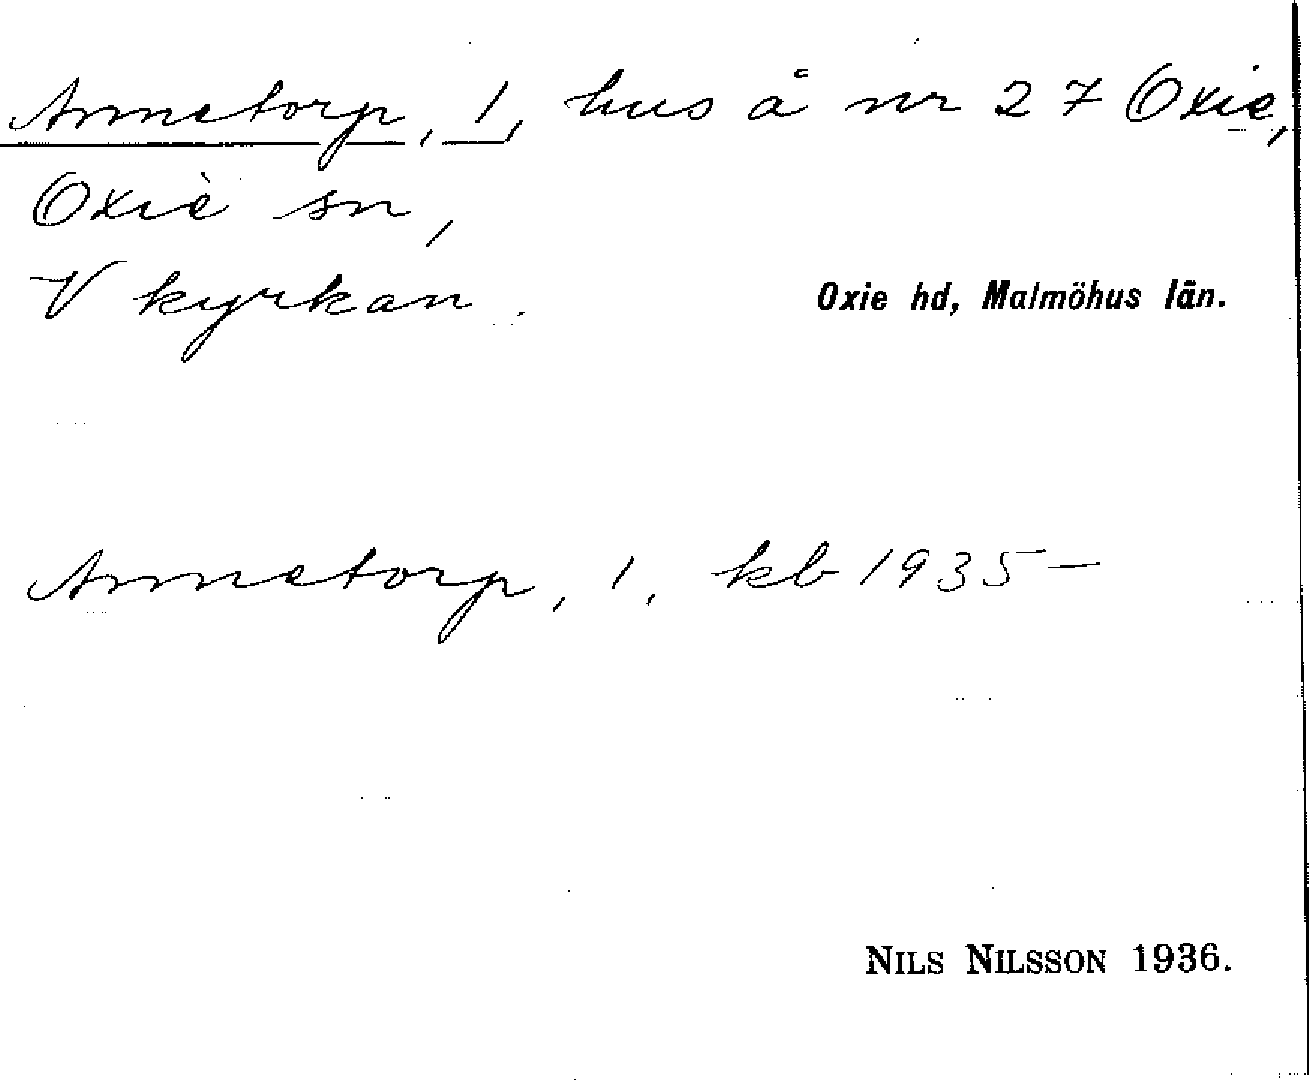 Annetorp, 1, hus å nr 27 Oxie,
Oxie sn,
V kyrkan.
Oxie hd, Malmöhus län.
Annetorp, 1, kb 1935—
NILS NILSSON 1936.